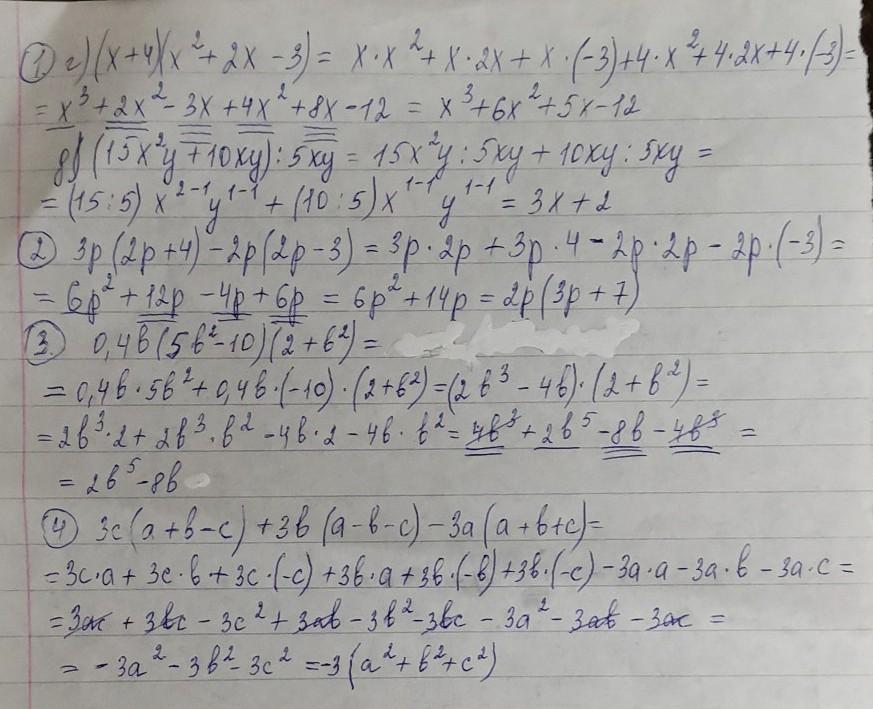 ① г) (x+4)(x²+2x-3) = x·x²+x·2x+x·(-3)+4·x²+4·2x+4·(-3)=
= x³+2x²-3x+4x²+8x-12 = x³+6x²+5x-12
д) (15x²y+10xy):5xy = 15x²y:5xy+10xy:5xy =
= (15:5) x²⁻¹y¹⁻¹ + (10:5) x¹⁻¹ y¹⁻¹ = 3x+2
② 3p(2p+4)-2p(2p-3) = 3p·2p+3p·4-2p·2p-2p·(-3)=
= 6p²+12p-4p+6p = 6p²+14p = 2p(3p+7)
③. 0,4b(5b²-10)(2+b²)=
= 0,4b·5b²+0,4b·(-10)·(2+b²)=(2b³-4b)·(2+b²)=
=2b³·2+2b³·b²-4b·2-4b·b²=4b³+2b⁵-8b-4b³ =
= 2b⁵-8b
④ 3c(a+b-c)+3b(a-b-c)-3a(a+b+c)=
=3c·a+3c·b+3c·(-c)+3b·a+3b·(-b)+3b·(-c)-3a·a-3a·b-3a·c=
=3ac+3bc-3c²+3ab-3b²-3bc-3a²-3ab-3ac =
= -3a²-3b²-3c² =-3(a²+b²+c²)